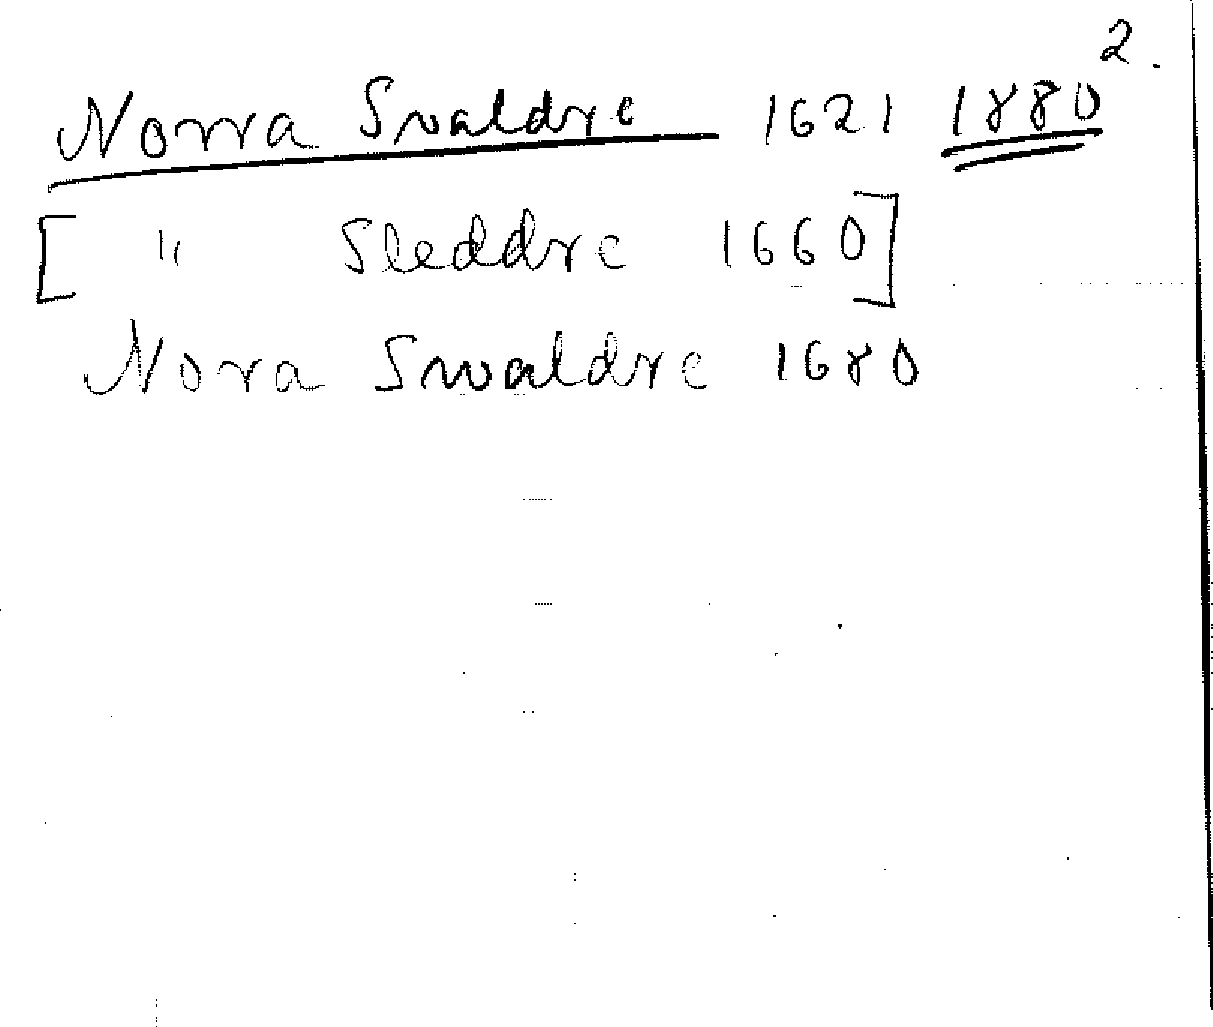 2.
Norra Svaldre 1621 1880
[ " Sleddre 1660]
Nora Swaldre 1680